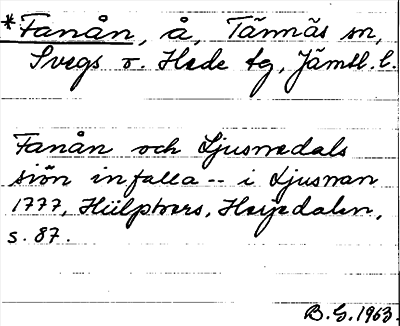 *Fanån, å, Tännäs sn,
Svegs o. Hede tg, Jämtl. l.
Fanån och Ljusnedals
siön infalla -- i Ljusnan
1777, Hülphers, Herjedalen,
s. 87.
B.G. 1963.